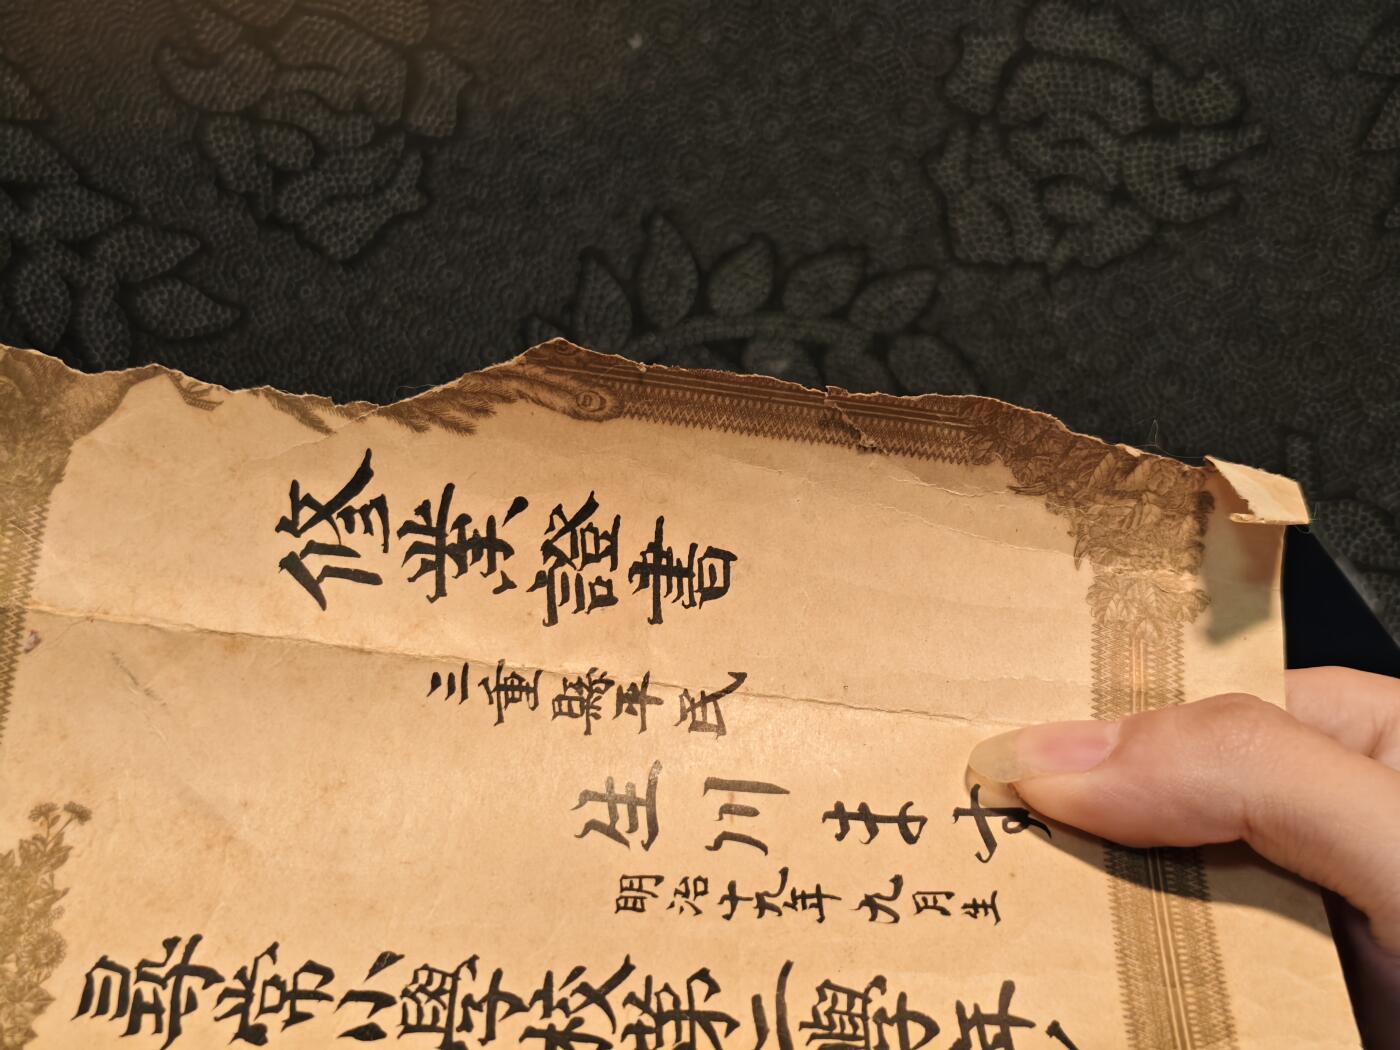 修業證書
三重縣平民
生川ます
明治十九年九月生
尋常小學校第二學年ノ